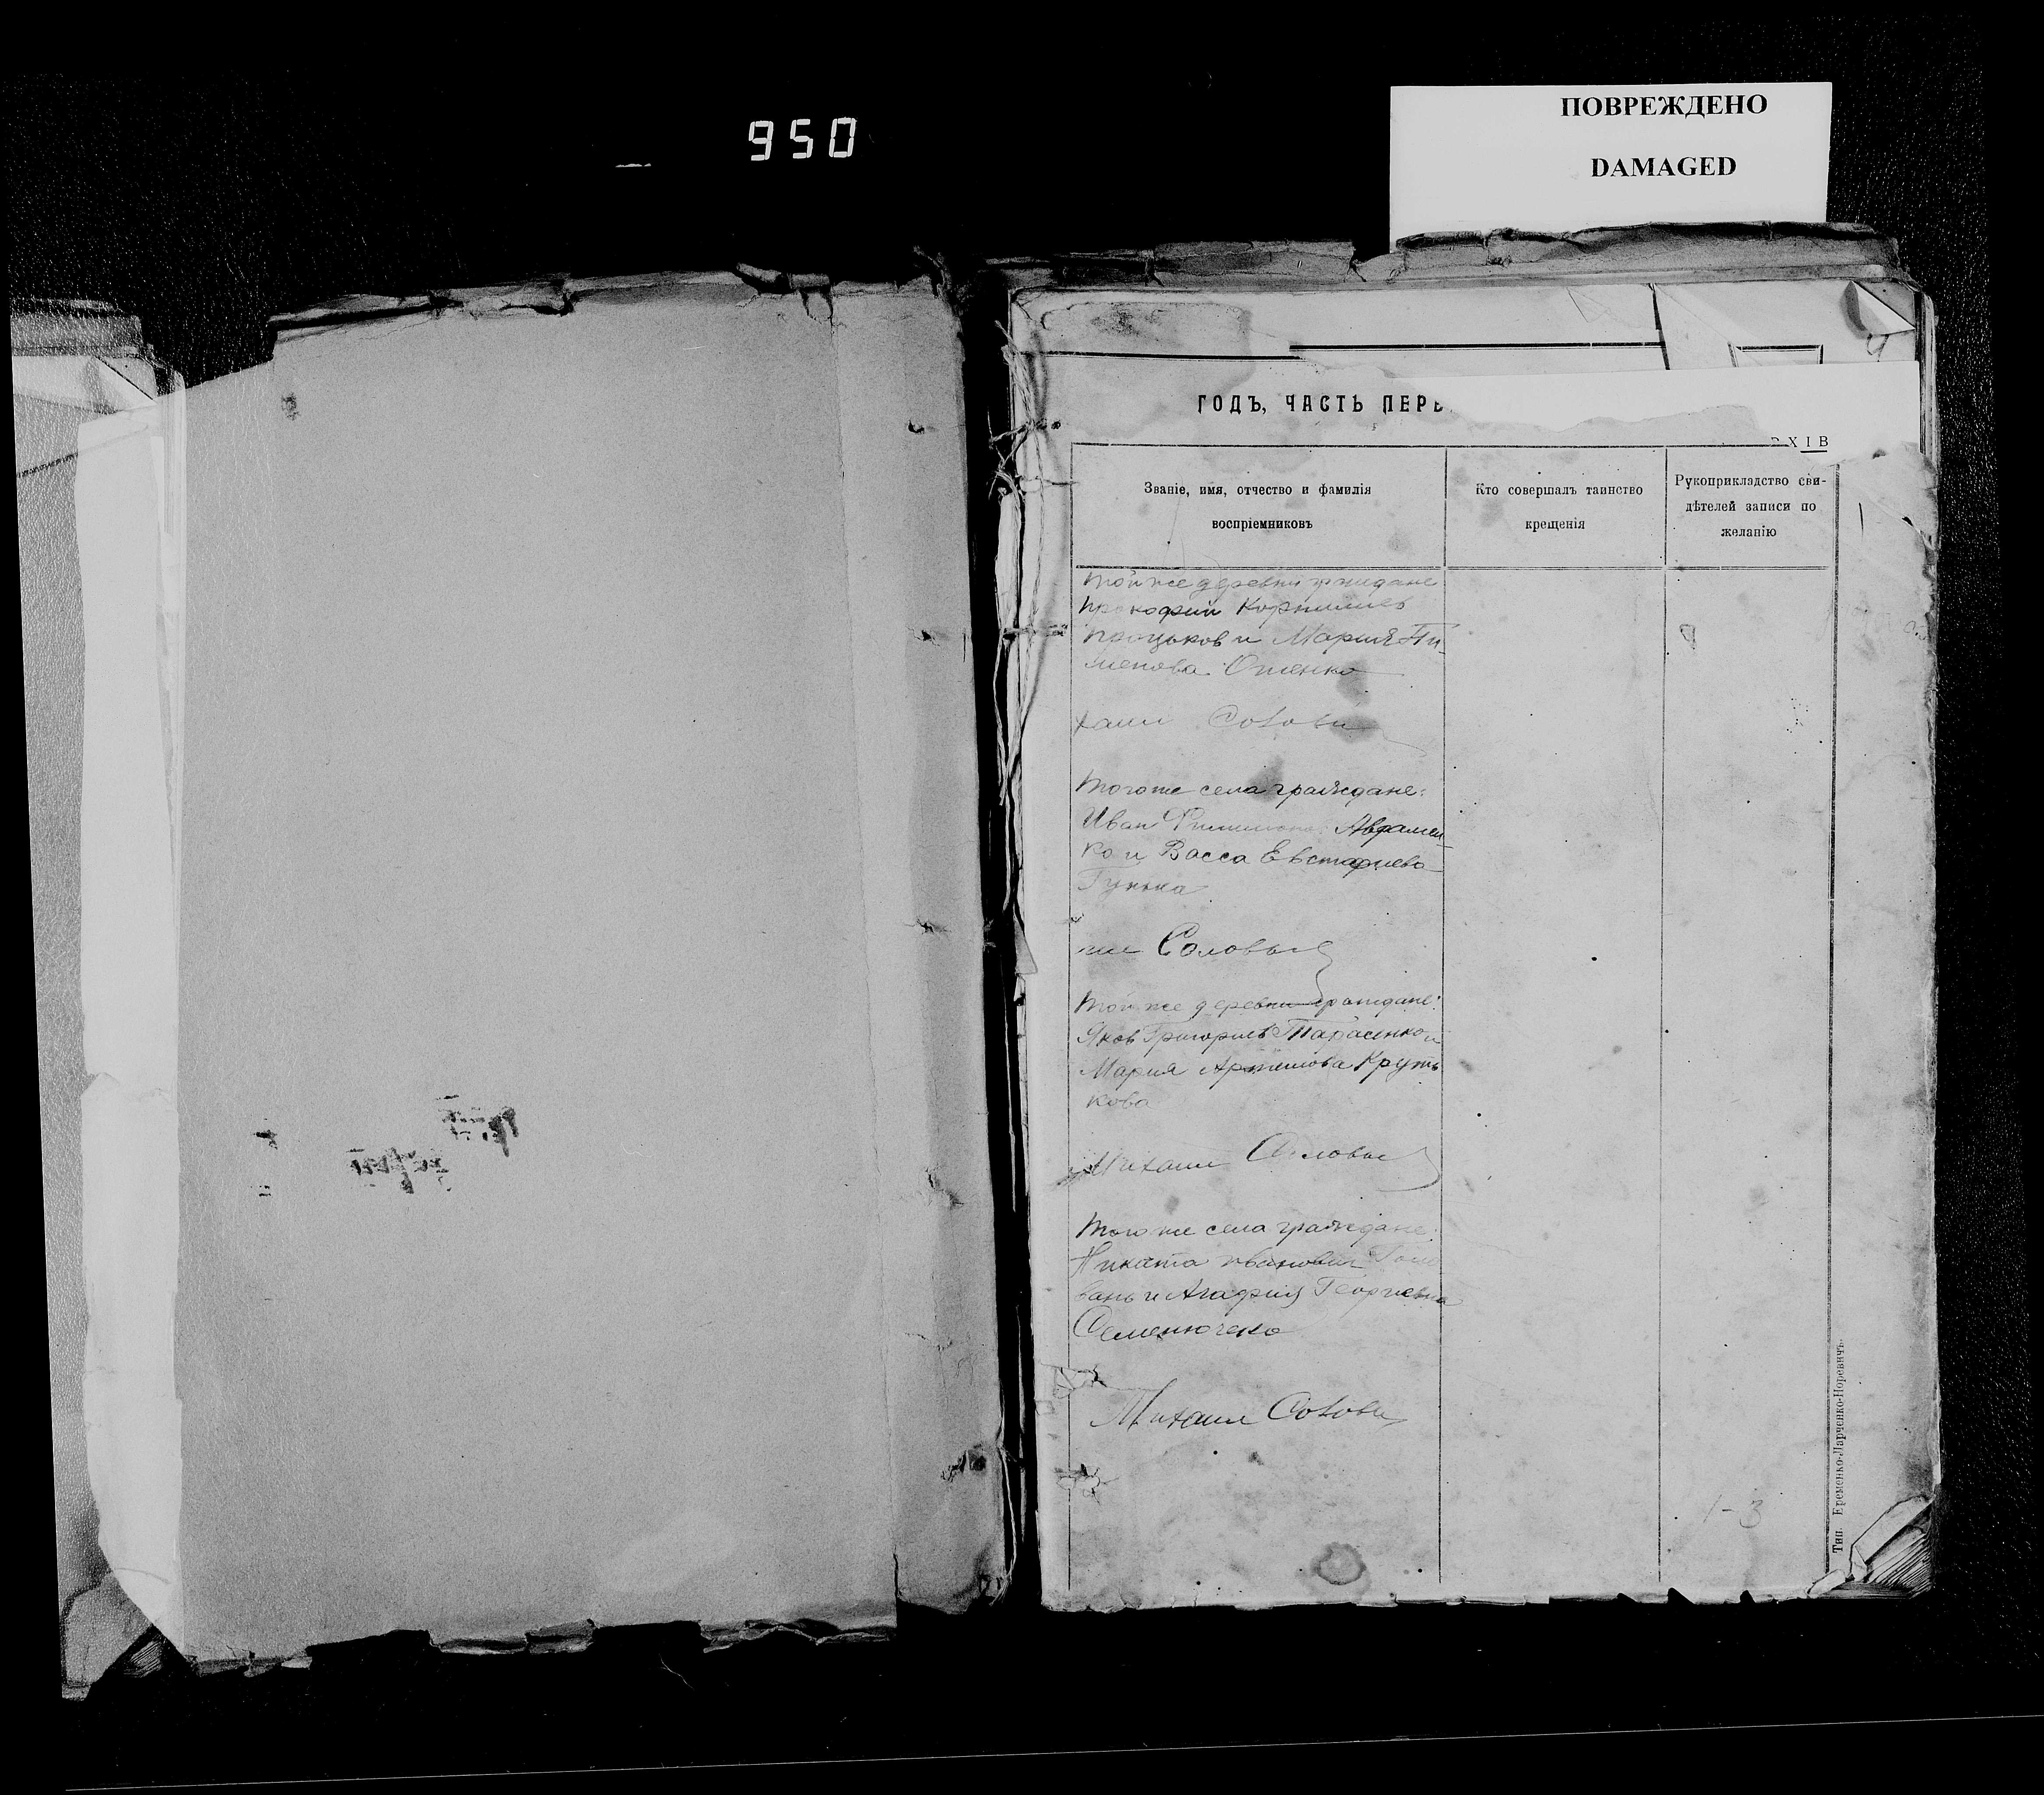 950
ПОВРЕЖДЕНО
DAMAGED
4
ГОДЪ, ЧАСТЬ ПЕРВ
РХІВ
Званіе, имя, отчество и фамилія
воспріемниковъ
Кто совершалъ таинство
крещенія
Рукоприкладство сви-
дѣтелей записи по
желанію
той же деревни граждане
Прокофий Корнилиев
и Мария Пи-
менова
хаил Соловьев
того же села граждане:
Иван Аврамен-
ко и Васса Евстафиева
Гунька
же Соловьев
той же деревни граждане:
Яков Григориев Тарасенко и
Мария Артемова Круть
кова
Михаил Соловьев
того же села граждане:
Никита Иванович
вань и Агафия Георгиевна
Семенюченко
Михаил Соловьев
1-3
Тип. Еременко-Ларченко-Норевичъ.